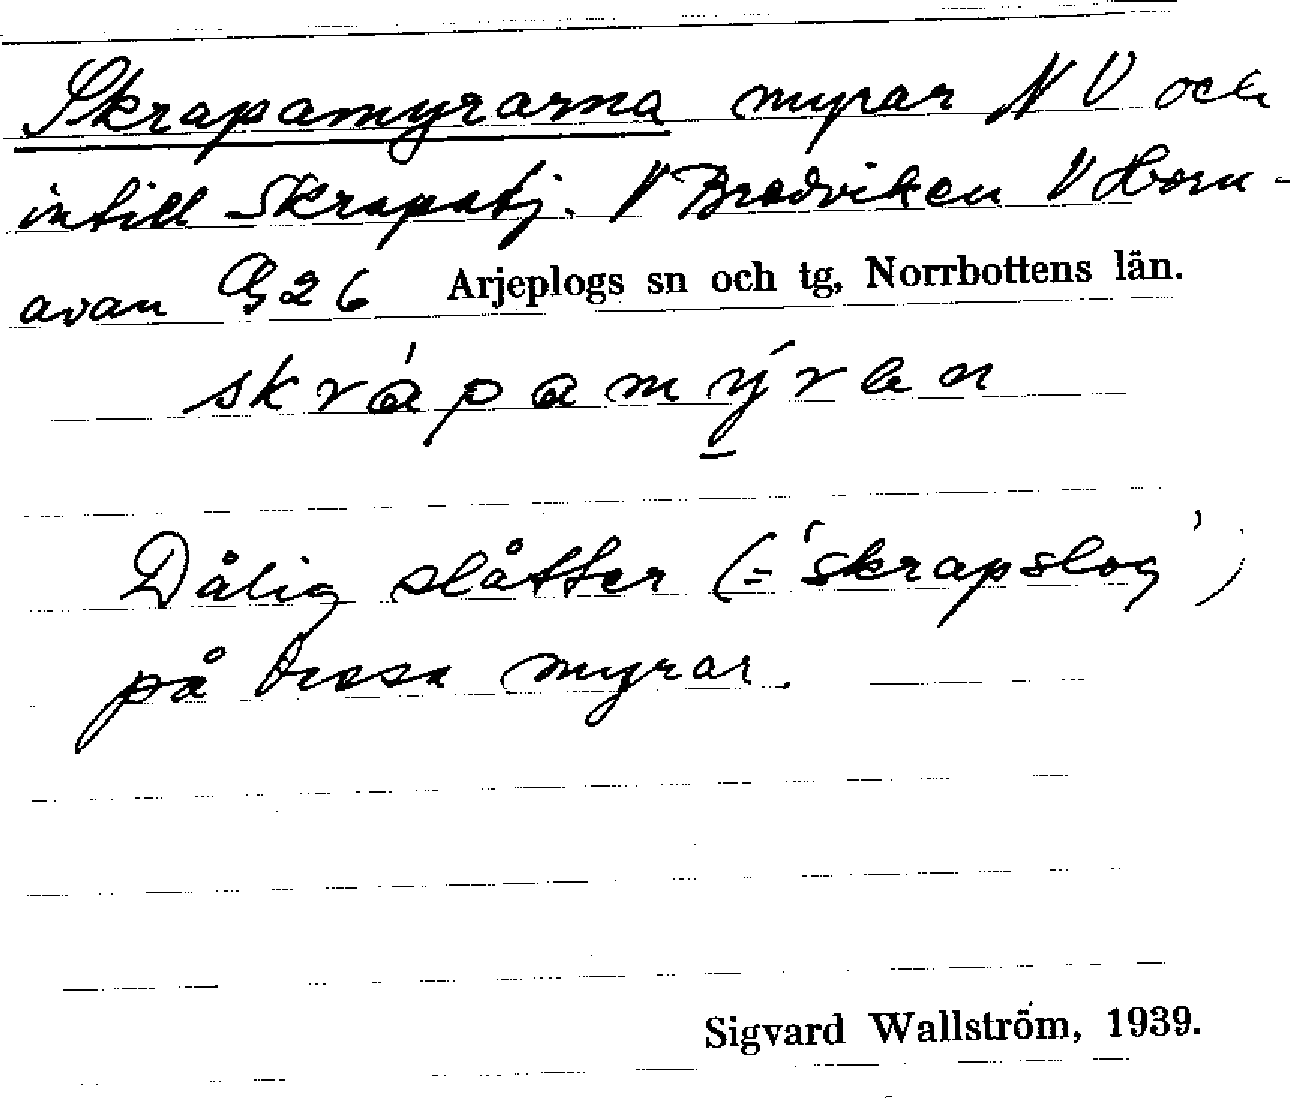 Skrapamyrarna myrar NV och
intill Skrapatj. V Bredviken V Horn-
avan G26 Arjeplogs sn och tg, Norrbottens län.
skrápamýren
Dålig slåtter (= 'skrapslog')
på dessa myrar.
Sigvard Wallström, 1939.